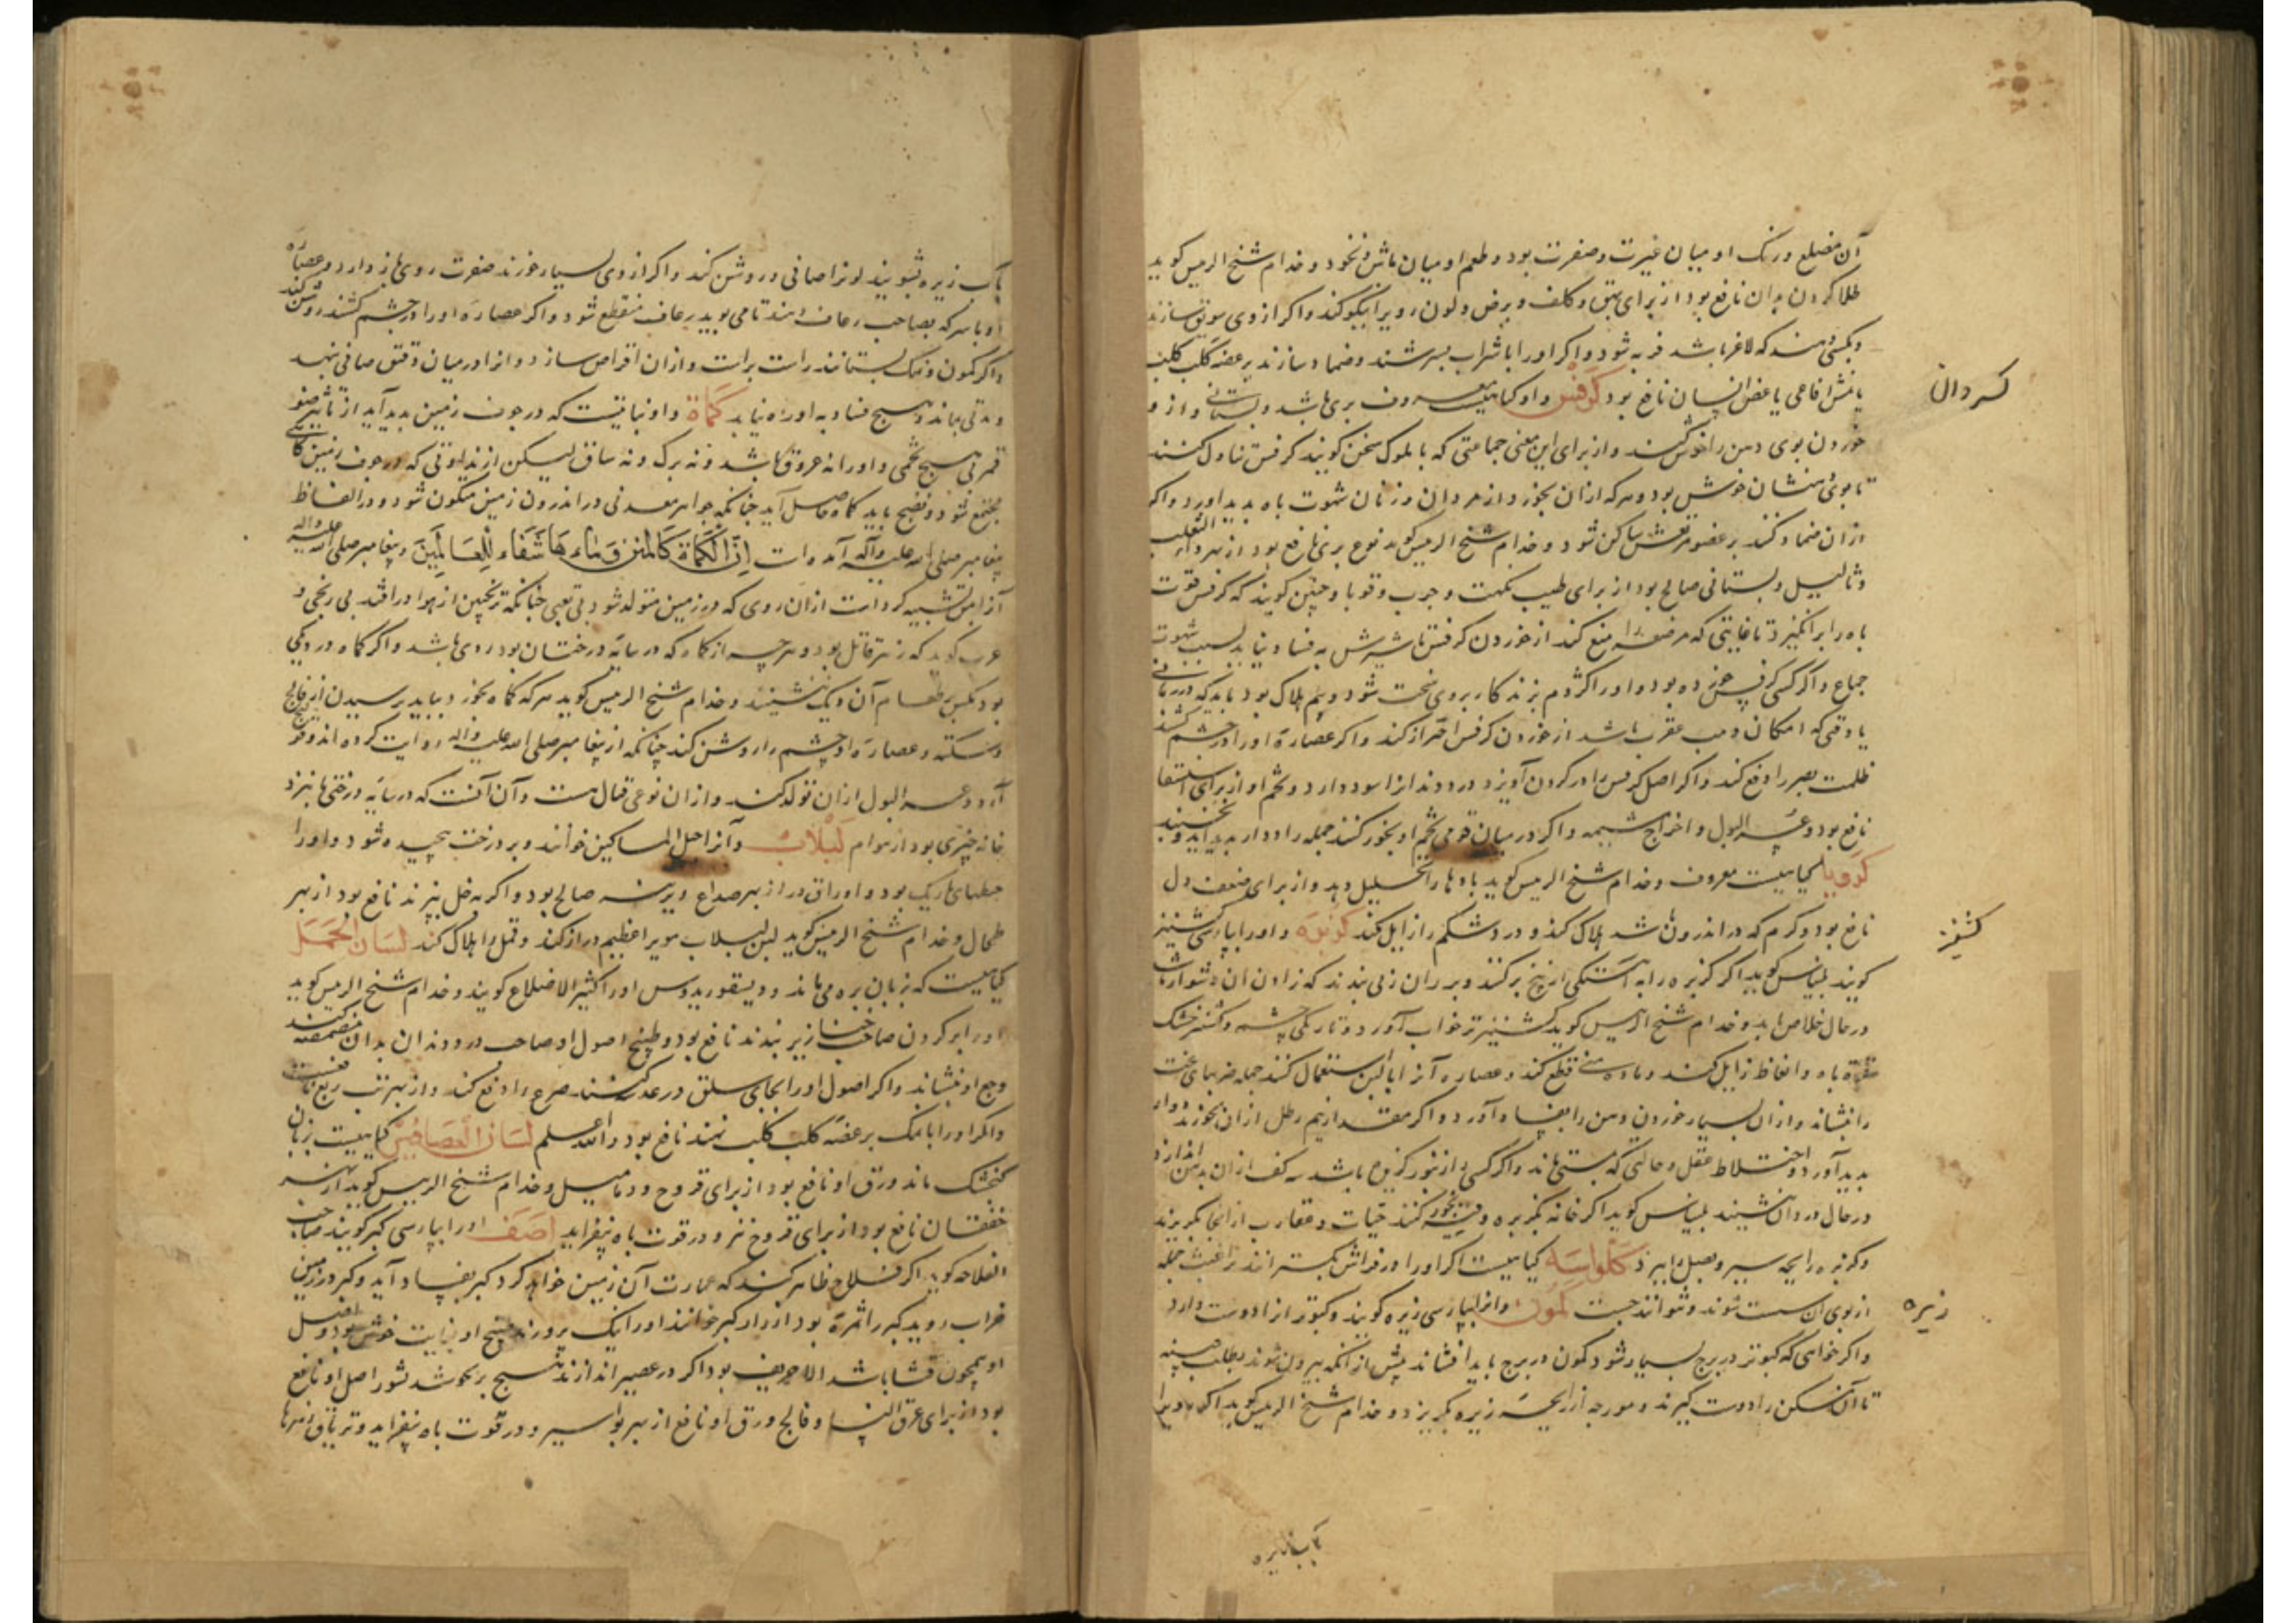 آن مضلع و رنگ او میان غبرت و صفرت بود و طعم او میان ماش و نخود و خدام شیخ الرییس کوید
طلا کردن بدان نافع بود از برای بهق و کلف و برص و لون رویرا نیکو کند و اکر از وی سویق سازند
و بکسی دهند که لاغر باشد فربه شود و اکر او را با شراب بسرشند و ضماد سازند بر عضه کلب کلب
یا نهش افاعی یا عض انسان نافع بود کرفس و او کیاهیست معروف بری باشد و بستانی و از و
خوردن بوی دهن را خوش کند و از برای این معنی جماعتی که با ملوک سخن کویند کرفس تناول کنند
تا بوی دهنشان خوش بود و هر که از آن بخورد از مردان و زنان شهوت باه پدید آورد و اکر
از ان ضماد کنند بر عضو مرتعش ساکن شود و خدام شیخ الرییس کوید نوع بری نافع بود از بهر داء الثعلب
و ثالیل و بستانی صالح بود از برای طیب نکهت و جرب و قوبا و چنین کویند که کرفس قوت
باه را برانگیزد تا غایتی که مرضعه را منع کند از خوردن کرفس تا شیرش به فساد نیاید بسبب شهوت
جماع و اکر کسی کرفس خورده بود و او را کژدم بزند کار بر وی سخت شود و بیم هلاک بود باید که در زمانی
یا وقتی که امکان دبیب عقرب باشد از خوردن کرفس احتراز کند و اکر عصاره او را در چشم کشند
ظلمت بصر را دفع کند و اکر اصل کرفس را در کردن آویزد درد دندانرا سود دارد و تخم او از برای استسقا
نافع بود و عسر البول و اخراج مشیمه و اکر در میان قومی تخم او بخور کنند جمله را دوار پدید آید و بخسبند
کرویا کیاهیست معروف و خدام شیخ الرییس کوید بادها را تحلیل دهد و از برای ضعف دل
نافع بود و کرم که در اندرون باشد هلاک کند و درد شکم را زایل کند کزبره و او را بپارسی کشنیز
کویند بلیناس کوید اکر کزبره را به آهستگی از بیخ برکنند و بر ران زنی بندند که زادن آن دشوار باشد
در حال خلاص یابد و خدام شیخ الرییس کوید کشنیز تر خواب آورد و تاریکی چشم و کشنیز خشک
قوه باه و انعاظ زایل کند و ماده منی قطع کند و عصاره آنرا با لبن استعمال کنند جمله ضربهای سخت
را بنشاند و از آن بسیار خوردن ذهن را بفساد آورد و اکر مقدار نیم رطل از آن بخورند دوار
پدید آورد و اختلاط عقل و حالتی که بمستی ماند و اکر کسی از بخور کزبره باشد سه کف از آن بدهن اندازد
در حال درد آن نشیند بلیناس کوید اکر خانه بکزبره و میعه بخور کنند حیات و عقارب از آنجا بگریزند
و کزبره رایحه سیر و بصل را ببرد کلواسه کیاهیست اکر او را در فراش بگسترانند براغیث جمله
از بوی آن سست شوند و نتوانند جست کمون و آنرا بپارسی زیره کویند و کبوتر آنرا دوست دارد
و اکر خواهی که کبوتر در برج بسیار شود کمون در برج باید افشاند پیش از آنکه بیرون شوند بطلب چینه
تا آن مسکن را دوست کیرند و مورچه از رایحه زیره بگریزد و خدام شیخ الرییس کوید اکر رویرا
بآب زیره
کسر دال
کشنیز
زیره
بآب زیره بشویند لونرا صافی و روشن کند و اکر از وی بسیار خورند صفرت روی باز دارد و عصاره
او با سرکه بصاحب رعاف دهند تا می بوید رعاف منقطع شود و اکر عصاره او را در چشم کشند روشن کند
و اکر کمون و نمک بستانند راست براست و از آن اقراص سازد و از او در میان دقیق صافی نهد
و مدتی بماند هیچ فساد به او راه نیابد کماة و او نباتیست که در جوف زمین پدید آید از تاثیر ضو
قمر نی هیچ تخمی و او را نه عروق باشد و نه برک و نه ساق لیکن از نداوتی که در جوف زمین کاه
مجتمع شود و نضج یابد کماه حاصل آید چنانکه جواهر معدنی در اندرون زمین متکون شود و در الفاظ
پیغامبر صلی الله علیه وآله آمده است اِنَّ الکَمَاة کَالمَنِّ وَمَاءُهَا شَفَاء لِلْعَالَمِیْنَ و پیغامبر صلی الله علیه وآله
آنرا بمن تشبیه کرده است از آن روی که در زمین متولد شود بی تعبی چنانکه ترنجبین از هوا درافتد بی رنجی و
عرب کوید که زهر قاتل بود و هر چه از کماه که در سایه درختان بود ردی باشد و اکر کماه در دیگی
بود مکس بر طعام آن دیک ننشیند و خدام شیخ الرییس کوید هر که کماه بخورد بباید ترسیدن از فالج
و سکته و عصاره او چشم را روشن کند چنانکه از پیغامبر صلی الله علیه واله روایت کرده اند و قولنج
آرد و عسر البول از آن تولد کند و از آن نوعی قتال هست و آن آنست که در سایه درختها بنزد
خانه چیزی بود از هوام لبلاب و آنرا حبل المساکین خوانند و بر درخت پیچیده شود و او را
خیطهای باریک بود و اوراق دراز بهر صداع دیرینه صالح بود و اکر به خل بپزند نافع بود از بهر
طحال و خدام شیخ الرییس کوید لبن لبلاب مویرا عظیم دراز کند و قمل را هلاک کند لسان الحمل
کیاهیست که بزبان بره می ماند و دیسقوریدوس او را کثیر الاضلاع کویند و خدام شیخ الرییس کوید
او را بر کردن صاحب خنازیر بندند نافع بود و طبیخ اصول او صاحب درد دندان بدان مضمضه کند
وجع او بنشاند و اکر اصول او را بجای سلق در عدس کنند صرع را دفع کند و از بهر تب ربع نافعست
و اکر او را با نمک بر عضه کلب کلب نهند نافع بود والله اعلم لسان العصافیر کیاهیست بزبان
کنجشک ماند ورق او نافع بود از برای قروح و دمامیل و خدام شیخ الرییس کوید از بهر
خفقان نافع بود از برای قروح تنز و در قوت باه بیفزاید اصف او را بپارسی کبر کویند صاحب
الفلاحه کوید اکر فلاح ظاهر کند که عمارت آن زمین خواهد کرد کبر بفساد آید و کبر در زمین
خراب روید کبر را ثمرة بود از آن او را کبر خوانند او را نیک پرورند طبخ او بغایت خوش بود و اصل
او همچون قثا باشد الا حریف بود اکر در عصیر اندازند هیچ بر نجوشد قشور اصل او نافع
بود از برای عرق النسا و فالج ورق او نافع از بهر بواسیر و در قوت باه بیفزاید و تریاق زهرها